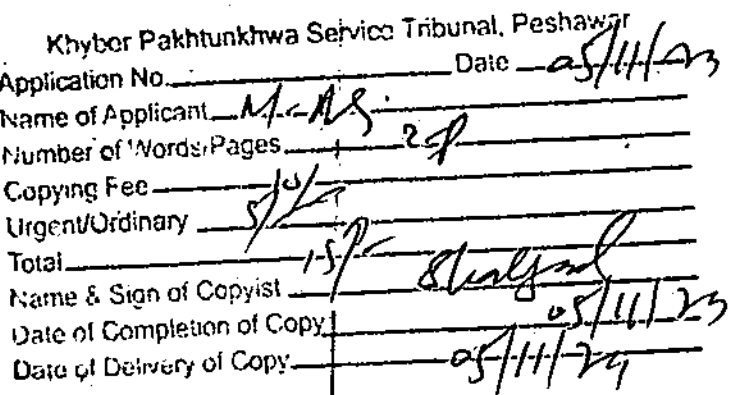 Khyber Pakhtunkhwa Service Tribunal, Peshawar
Application No. Date 05/11/23
Name of Applicant
Number of Words/Pages 2P
Copying Fee 10/-
Urgent/Ordinary 5/-
Total 15/-
Name & Sign of Copyist
Date of Completion of Copy 05/11/23
Date of Delivery of Copy 05/11/24